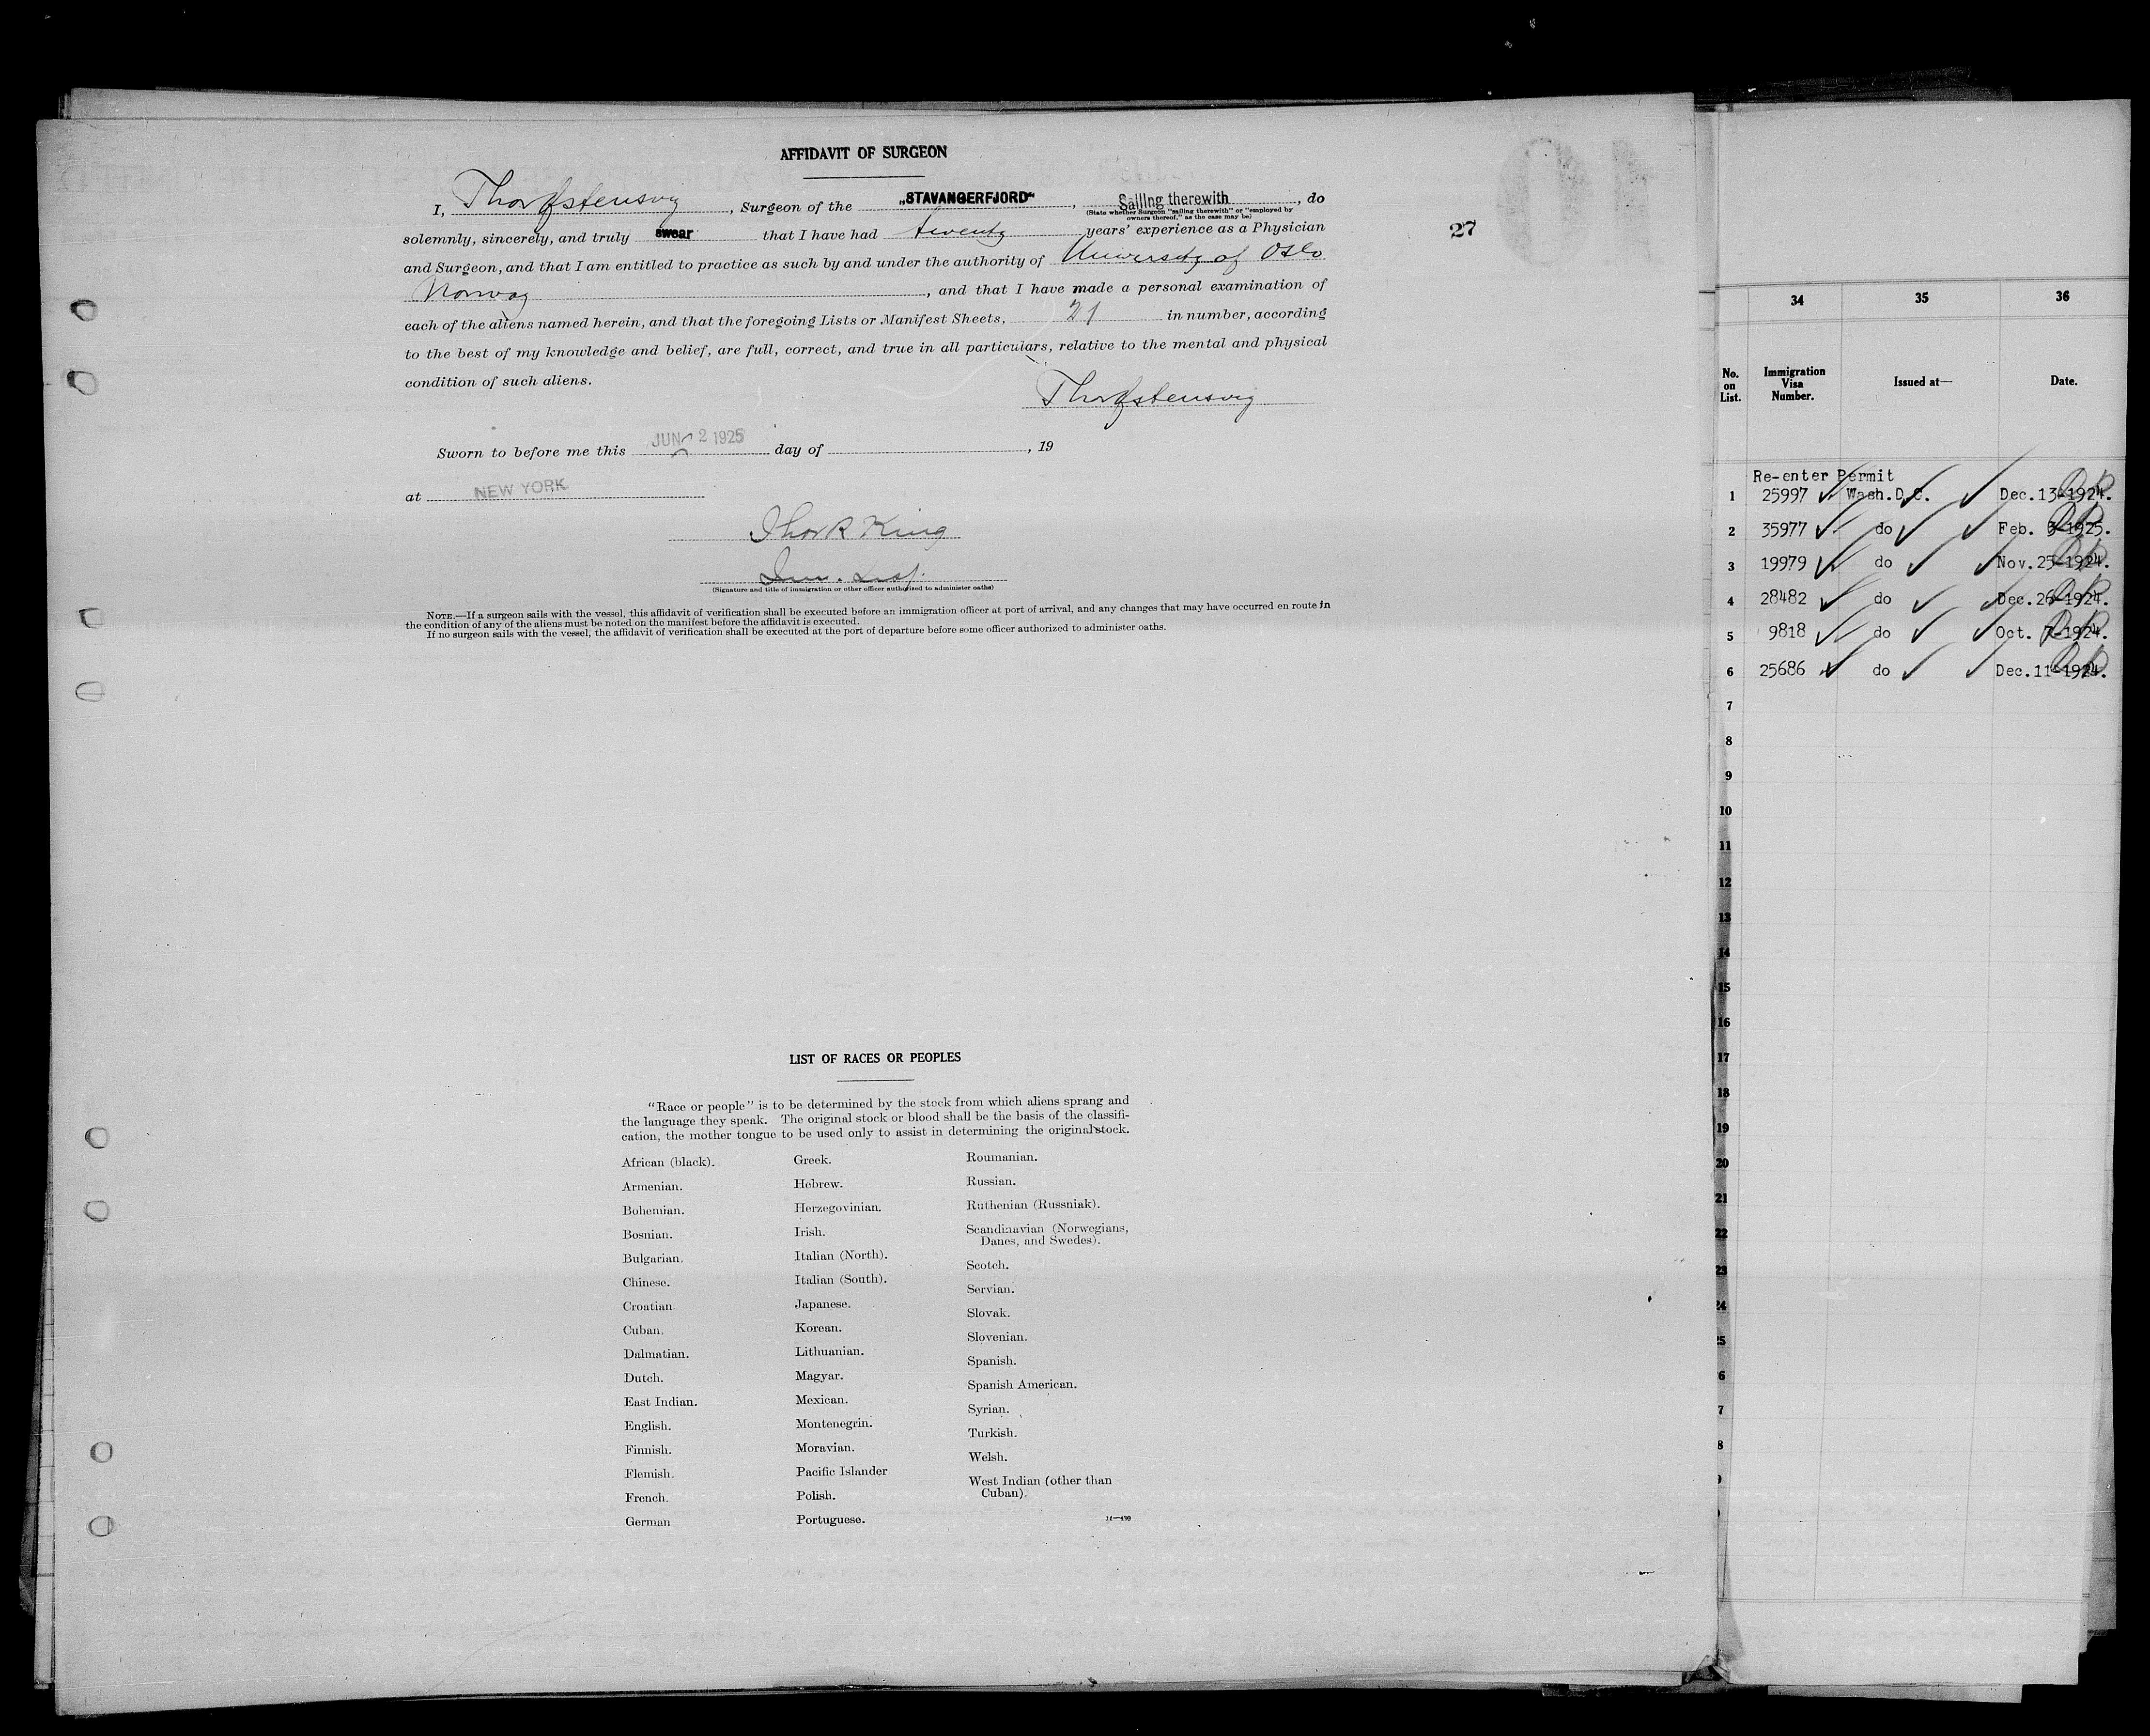 AFFIDAVIT OF SURGEON
I, Thor Østensvig, Surgeon of the "STAVANGERFJORD", Sailing therewith, do
(State whether Surgeon "sailing therewith" or "employed by
owners thereof," as the case may be)
solemnly, sincerely, and truly swear that I have had twenty years' experience as a Physician
and Surgeon, and that I am entitled to practice as such by and under the authority of University of Oslo
Norway, and that I have made a personal examination of
each of the aliens named herein, and that the foregoing Lists or Manifest Sheets, 21 in number, according
to the best of my knowledge and belief, are full, correct, and true in all particulars, relative to the mental and physical
condition of such aliens.
Thor Østensvig
Sworn to before me this JUN 2 1925 day of , 19
at NEW YORK
King
(Signature and title of immigration or other officer authorized to administer oaths)
NOTE.—If a surgeon sails with the vessel, this affidavit of verification shall be executed before an immigration officer at port of arrival, and any changes that may have occurred en route in
the condition of any of the aliens must be noted on the manifest before the affidavit is executed.
If no surgeon sails with the vessel, the affidavit of verification shall be executed at the port of departure before some officer authorized to administer oaths.
27
LIST OF RACES OR PEOPLES
"Race or people" is to be determined by the stock from which aliens sprang and
the language they speak. The original stock or blood shall be the basis of the classifi-
cation, the mother tongue to be used only to assist in determining the original stock.
African (black).
Armenian.
Bohemian.
Bosnian.
Bulgarian.
Chinese.
Croatian.
Cuban.
Dalmatian.
Dutch.
East Indian.
English.
Finnish.
Flemish.
French.
German
Greek.
Hebrew.
Herzegovinian.
Irish.
Italian (North).
Italian (South).
Japanese.
Korean.
Lithuanian.
Magyar.
Mexican.
Montenegrin.
Moravian.
Pacific Islander
Polish.
Portuguese.
Roumanian.
Russian.
Ruthenian (Russniak).
Scandinavian (Norwegians,
Danes, and Swedes).
Scotch.
Servian.
Slovak.
Slovenian.
Spanish.
Spanish American.
Syrian.
Turkish.
Welsh.
West Indian (other than
Cuban).
34 35 36
No. on List. Immigration Visa Number. Issued at— Date.
Re-enter Permit
1 25997 Wash.D.C. Dec.13-1924.
2 35977 do Feb. 3-1925.
3 19979 do Nov.25-1924.
4 28482 do Dec.26-1924.
5 9818 do Oct. 7-1924.
6 25686 do Dec.11-1924.
7
8
9
10
11
12
13
14
15
16
17
18
19
20
21
22
23
24
25
6
7
8